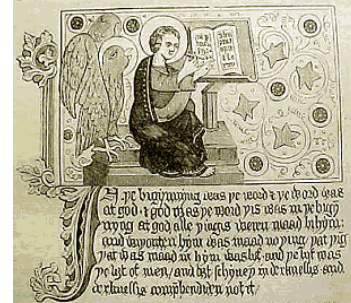 IN þe bigynnyng was þe word & þe word was
at god · & god was þe word þis was in þe bigyn
nyng at god, alle þingis weren maad bi hym:
and wiþouten hym was maad no þing, þat þig
þat was maad in hym was lijf, and þe lijf was
þe liȝt of men, and liȝt schyneþ in derknessis, and
derknessis comprehendiden not it,